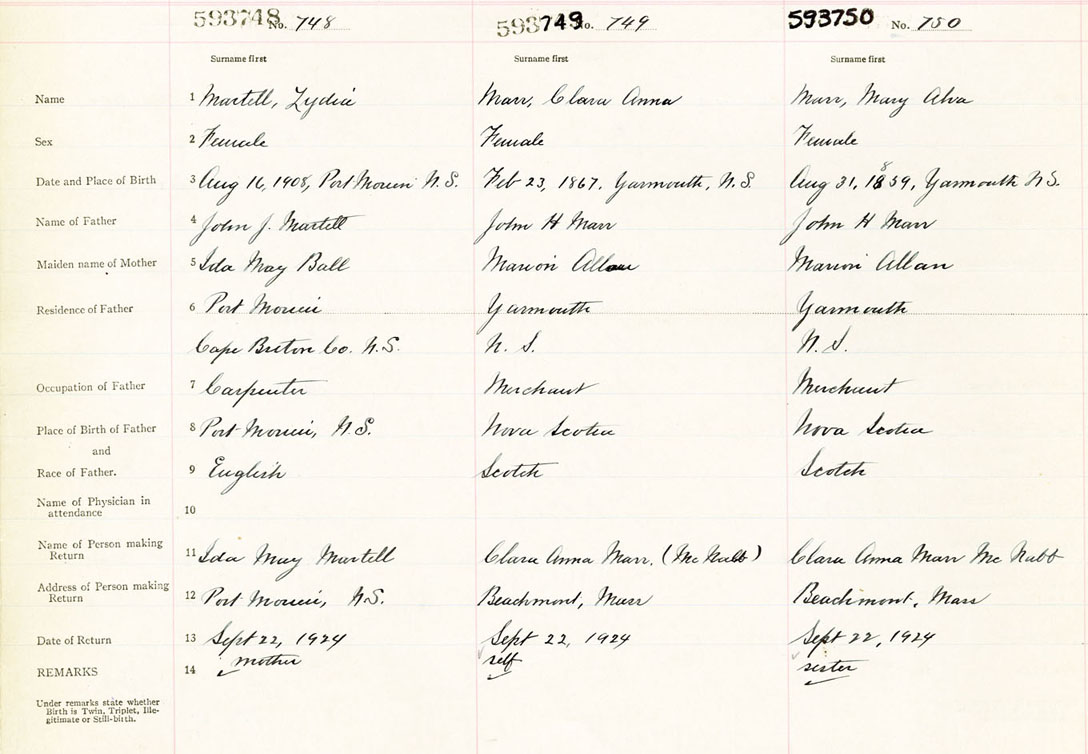 593748 No. 748 593749 No. 749 593750 No. 750
Surname first Surname first Surname first
Name 1 Martell, Lydia Marr, Clara Anna Marr, Mary Alva
Sex 2 Female Female Female
Date and Place of Birth 3 Aug 16, 1908, Port Morien N.S. Feb 23, 1867, Yarmouth, N.S. Aug 31, 1859, Yarmouth N.S.
Name of Father 4 John J. Martell John H Marr John H Marr
Maiden name of Mother 5 Ida May Ball Marion Allan Marion Allan
Residence of Father 6 Port Morien Yarmouth Yarmouth
Cape Breton Co. N.S. N. S. N. S.
Occupation of Father 7 Carpenter Merchant Merchant
Place of Birth of Father 8 Port Morien, N.S. Nova Scotia Nova Scotia
and
Race of Father. 9 English Scotch Scotch
Name of Physician in
attendance 10
Name of Person making
Return 11 Ida May Martell Clara Anna Marr. (Mc Nabb) Clara Anna Marr Mc Nabb
Address of Person making
Return 12 Port Morien, N.S. Beachmont, Mass Beachmont, Mass
Date of Return 13 Sept 22, 1924 Sept 22, 1924 Sept 22, 1924
REMARKS 14 mother self sister
Under remarks state whether
Birth is Twin, Triplet, Ille-
gitimate or Still-birth.